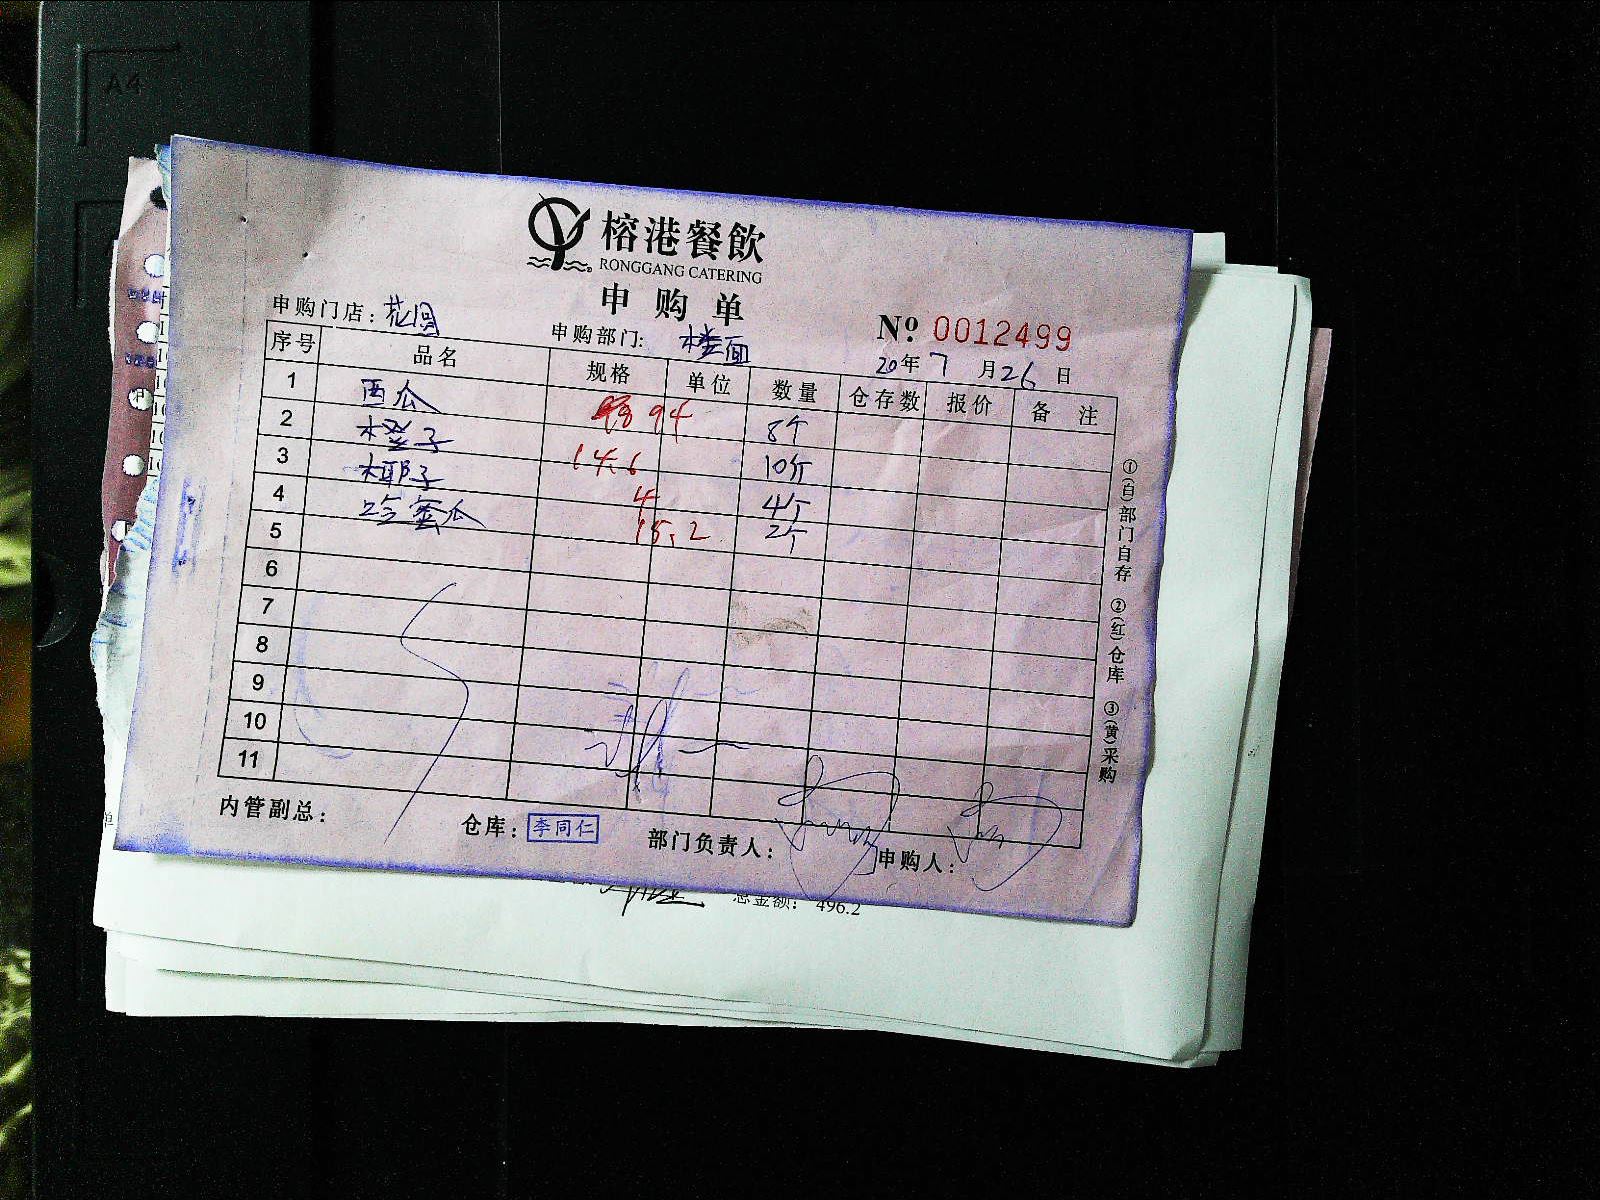 A4
榕港餐飲
RONGGANG CATERING
申购单
申购门店：花园
申购部门：楼面
Nº 0012499
20年7月26日
序号 品名 规格 单位 数量 仓存数 报价 备注
1 西瓜 94 8个
2 橙子 14.6 10斤
3 椰子 4 4个
4 哈蜜瓜 15.2 2个
5
6
7
8
9
10
11
①(白)部门自存 ②(红)仓库 ③(黄)采购
内管副总： 仓库：李同仁 部门负责人： 申购人：
总金额： 496.2